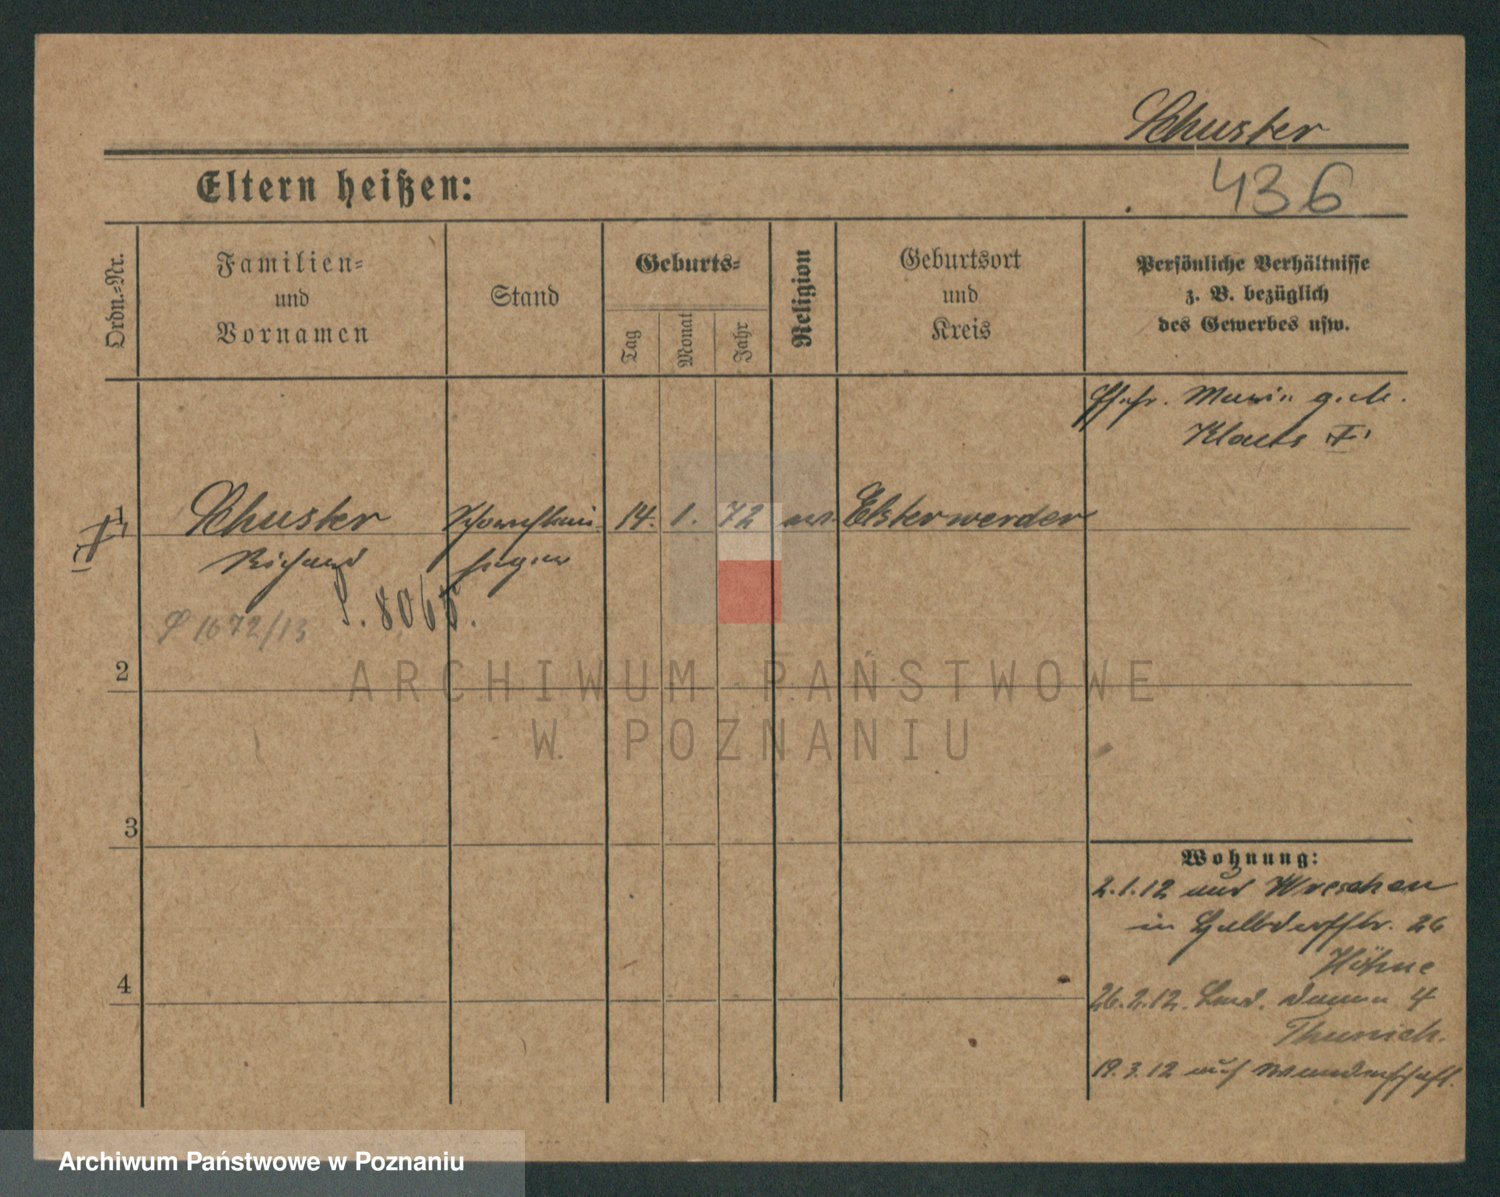 Schuster
Eltern heißen:
436
Ordn.=Nr.
Familien=
und
Vornamen
Stand
Geburts=
Tag
Monat
Jahr
Religion
Geburtsort
und
Kreis
Persönliche Verhältnisse
z. B. bezüglich
des Gewerbes usw.
Klaets
1 Schuster 14. 1. 72 Elsterwerder
Richard
S. 8065.
1672/13
2
ARCHIWUM PAŃSTWOWE
W POZNANIU
3
Wohnung:
2.1.12 aus Wreschen
in Halbdorfstr. 26
Höhne
4
26.2.12. 4
19.3.12 auf Wanderschaft
Archiwum Państwowe w Poznaniu